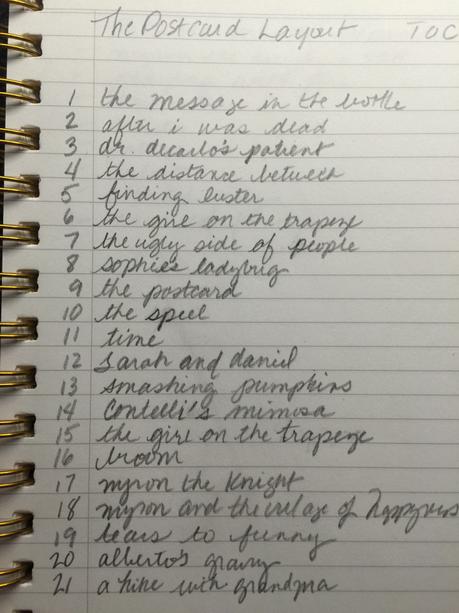 The Postcard Layout TOC
1 the message in the bottle
2 after i was dead
3 dr. decarlo's patient
4 the distance between
5 finding buster
6 the girl on the trapeze
7 the ugly side of people
8 sophie's ladybug
9 the postcard
10 the spell
11 time
12 Sarah and daniel
13 smashing pumpkins
14 mimosa
15 the girl on the trapeze
16 broom
17 myron the Knight
18 myron and the village of happyness
19 tears to funny
20 alberto's gravy
21 a hike with grandma